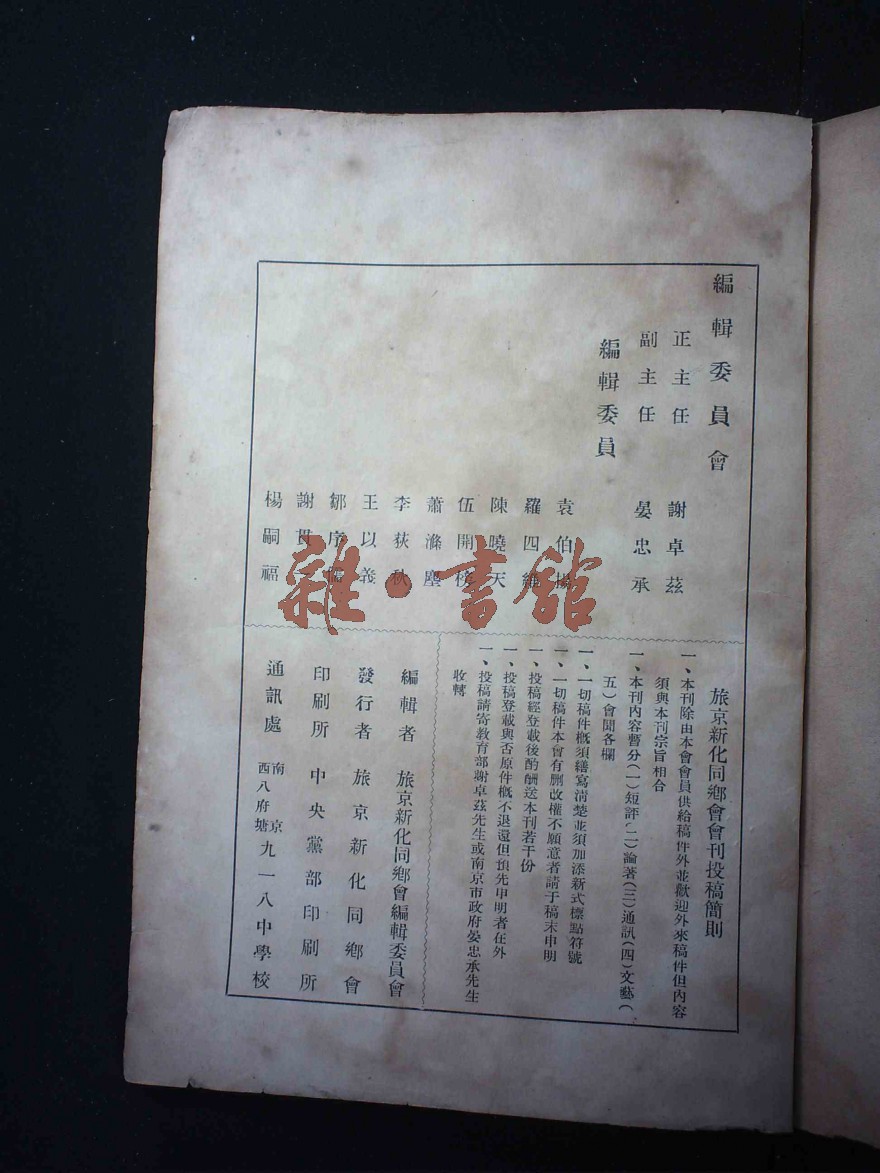 編輯委員會
正主任 謝卓茲
副主任 晏忠承
編輯委員
袁伯
羅四維
陳曉天
伍開
蕭滌塵
李荻秋
王以義
鄒序
謝貫
楊嗣福
旅京新化同鄉會會刊投稿簡則
一、本刊除由本會會員供給稿件外並歡迎外來稿件但內容
須與本刊宗旨相合
一、本刊內容暫分(一)短評(二)論著(三)通訊(四)文藝(
五)會聞各欄
一、一切稿件概須繕寫清楚並須加添新式標點符號
一、一切稿件本會有刪改權不願意者請于稿末申明
一、投稿經登載後酌酬送本刊若干份
一、投稿登載與否原件概不退還但預先申明者在外
一、投稿請寄教育部謝卓茲先生或南京市政府晏忠承先生
收轉
編輯者 旅京新化同鄉會編輯委員會
發行者 旅京新化同鄉會
印刷所 中央黨部印刷所
通訊處 南京西八府塘九一八中學校
雜·書館